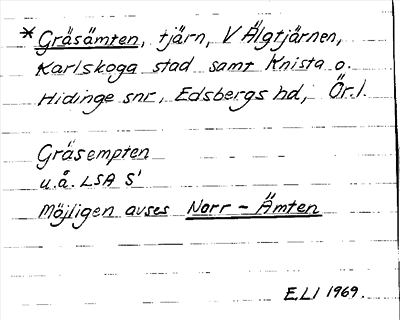 * Gräsämten, tjärn, V Älgtjärnen,
Karlskoga stad samt Knista o.
Hidinge snr, Edsbergs hd, Ör. l.
Gräsempten
u.å. LSA S'
Möjligen avses Norr - Ämten
E.LI 1969.